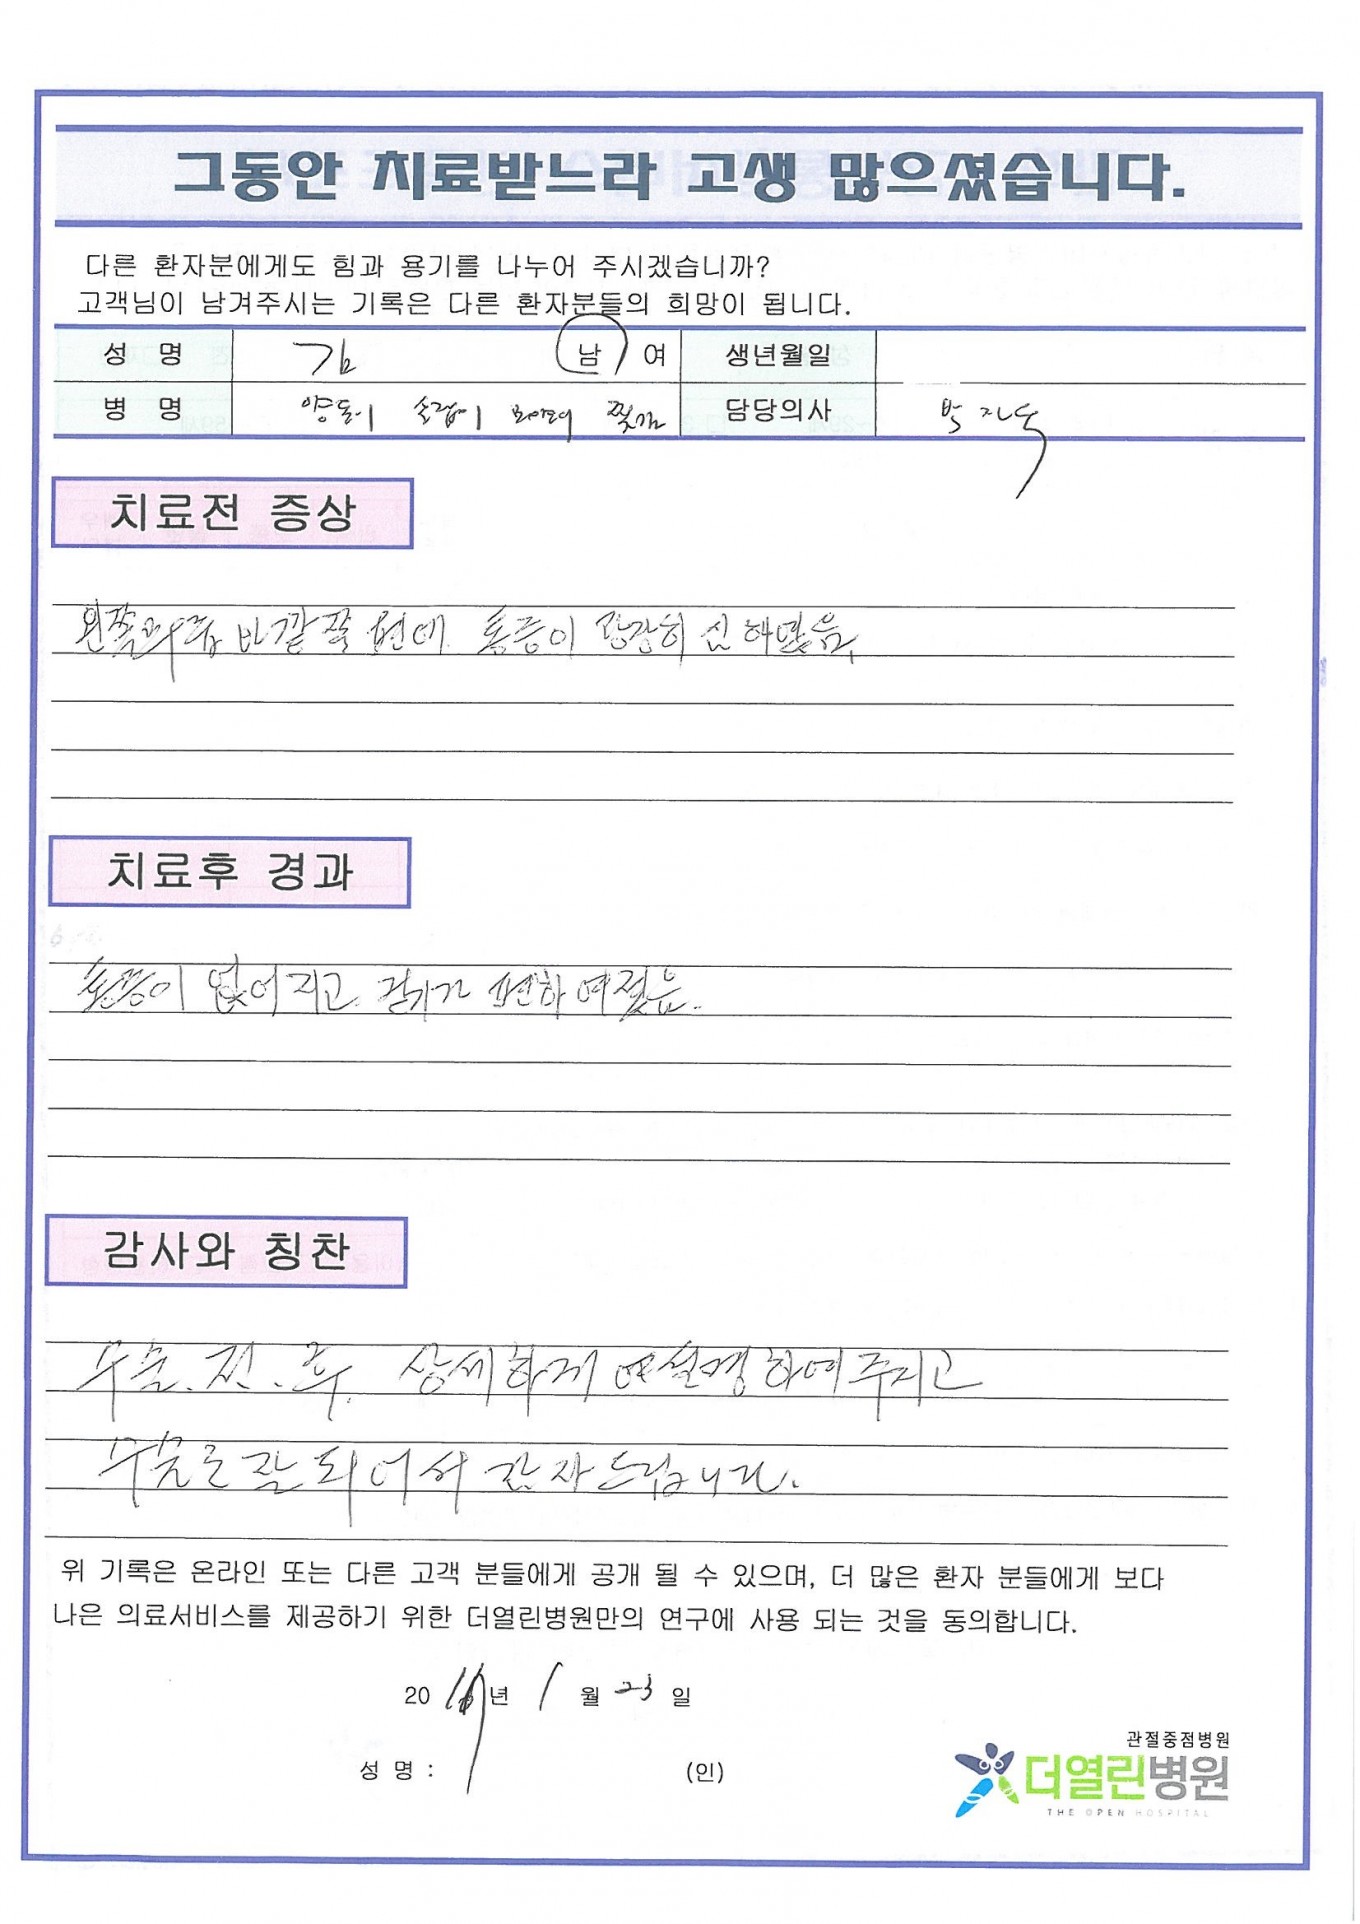 그동안 치료받느라 고생 많으셨습니다.
다른 환자분에게도 힘과 용기를 나누어 주시겠습니까?
고객님이 남겨주시는 기록은 다른 환자분들의 희망이 됩니다.
성 명 김 남 / 여 생년월일
병 명 찢김 담당의사 박
치료전 증상
왼쪽무릎 바깥쪽 편에 통증이 굉장히 심하였음,
치료후 경과
통증이 없어지고 걷기가 편하여졌음.
감사와 칭찬
수술.전.후. 상세하게 설명하여주시고
수술도잘되어서 감사드립니다.
위 기록은 온라인 또는 다른 고객 분들에게 공개 될 수 있으며, 더 많은 환자 분들에게 보다
나은 의료서비스를 제공하기 위한 더열린병원만의 연구에 사용 되는 것을 동의합니다.
20 년 1 월 23 일
성 명 : (인)
관절중점병원
더열린병원
THE OPEN HOSPITAL